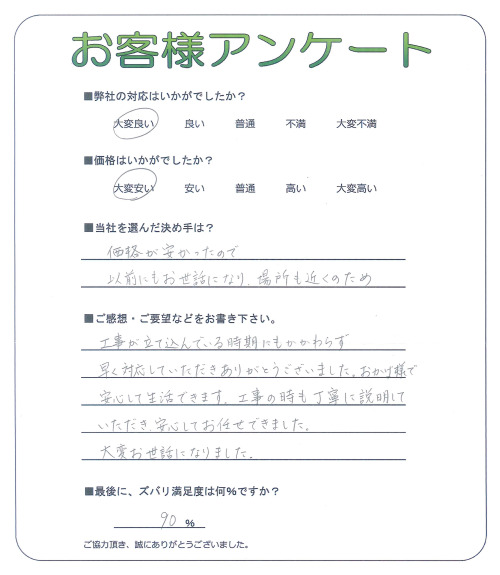 お客様アンケート
■弊社の対応はいかがでしたか？
大変良い 良い 普通 不満 大変不満
■価格はいかがでしたか？
大変安い 安い 普通 高い 大変高い
■当社を選んだ決め手は？
価格が安かったので
以前にもお世話になり、場所も近くのため
■ご感想・ご要望などをお書き下さい。
工事が立て込んでいる時期にもかかわらず
早く対応していただきありがとうございました。おかげ様で
安心して生活できます。工事の時も丁寧に説明して
いただき、安心してお任せできました。
大変お世話になりました。
■最後に、ズバリ満足度は何%ですか？
90 %
ご協力頂き、誠にありがとうございました。